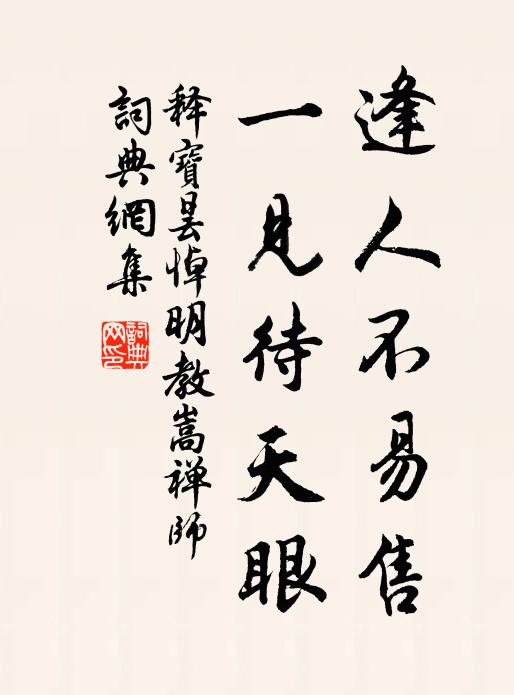 逢人不易售
一見待天眼
释寶昙悼明教嵩禅師
詞典網集
詞典网印